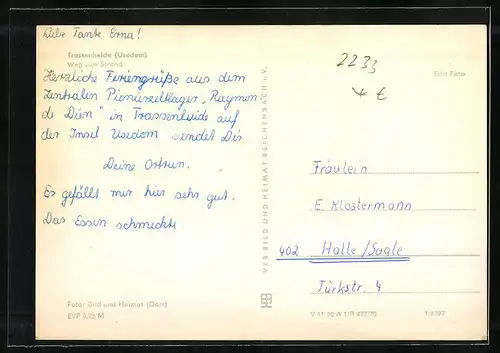 Liebe Tante Erna!
Trassenheide (Usedom)
Weg zum Strand
Herzliche Feriengrüße aus dem
Zentralen Pionierzeltlager „Raymon
de Dien" in Trassenheide auf
der Insel Usedom sendet Dir
Deine Ortrun.
Es gefällt mir hier sehr gut.
Das Essen schmeckte
Foto: Bild und Heimat (Darr)
EVP 0,23 M
VEB BILD UND HEIMAT REICHENBACH i. V.
2233
Echt Foto
Fräulein
E. Klostermann
402 Halle/Saale
Türkstr. 4
V 11 50 A 1/B 477/70